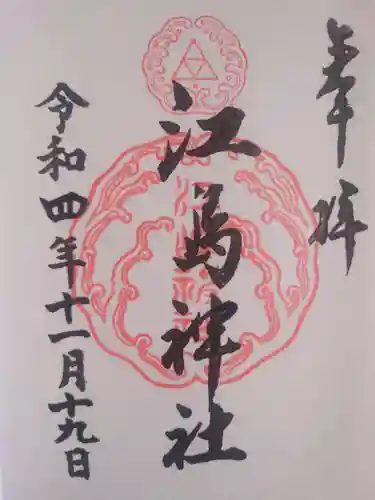 奉拝
江島神社
令和四年十一月十九日